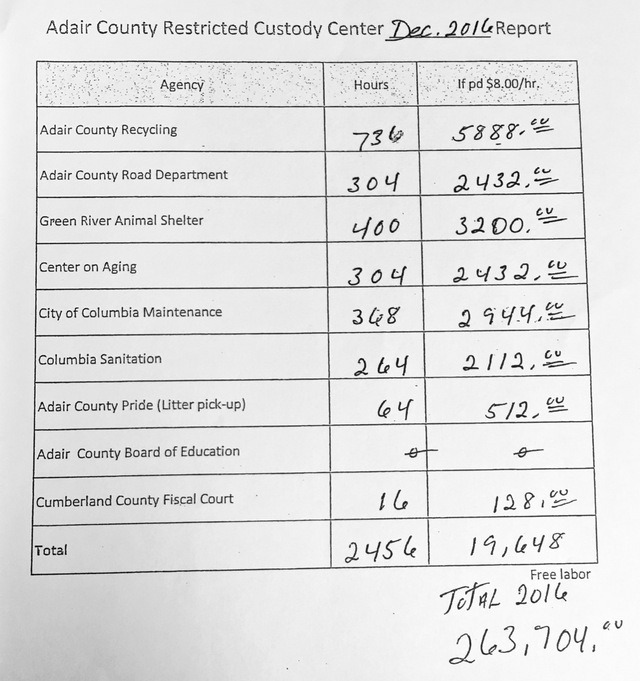 Adair County Restricted Custody Center Dec. 2016 Report
Agency Hours If pd $8.00/hr.
Adair County Recycling 736 5888.00
Adair County Road Department 304 2432.00
Green River Animal Shelter 400 3200.00
Center on Aging 304 2432.00
City of Columbia Maintenance 368 2944.00
Columbia Sanitation 264 2112.00
Adair County Pride (Litter pick-up) 64 512.00
Adair County Board of Education 0 0
Cumberland County Fiscal Court 16 128.00
Total 2456 19,648
Free labor
TOTAL 2016
263,704.00